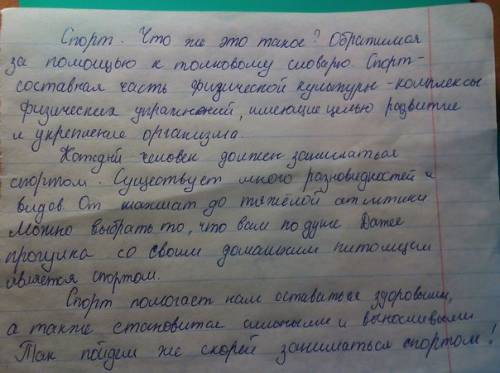 Спорт. Что же это такое? Обратимся
за помощью к толковому словарю. Спорт-
составная часть физической культуры - комплексы
физических упражнений, имеющие целью развитие
и укрепление организма.
Каждый человек должен заниматься
спортом. Существует много разновидностей и
видов. От шахмат до тяжёлой атлетики
Можно выбрать то, что вам по душе Даже
прогулка со своим домашним питомцем
является спортом.
Спорт помогает нам оставаться здоровыми,
а также становится сильными и выносливыми
Так пойдем же скорей заниматься спортом!